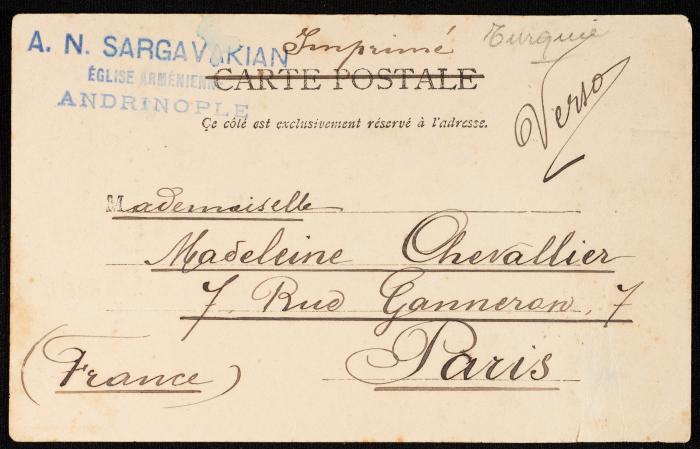 A. N. SARGAVAKIAN
ÉGLISE ARMÉNIENNE
ANDRINOPLE
Imprimé
Turquie
CARTE POSTALE
Verso
Ce côté est exclusivement réservé à l'adresse.
Mademoiselle
Madeleine Chevallier
7, Rue Ganneron, 7
Paris
(France)